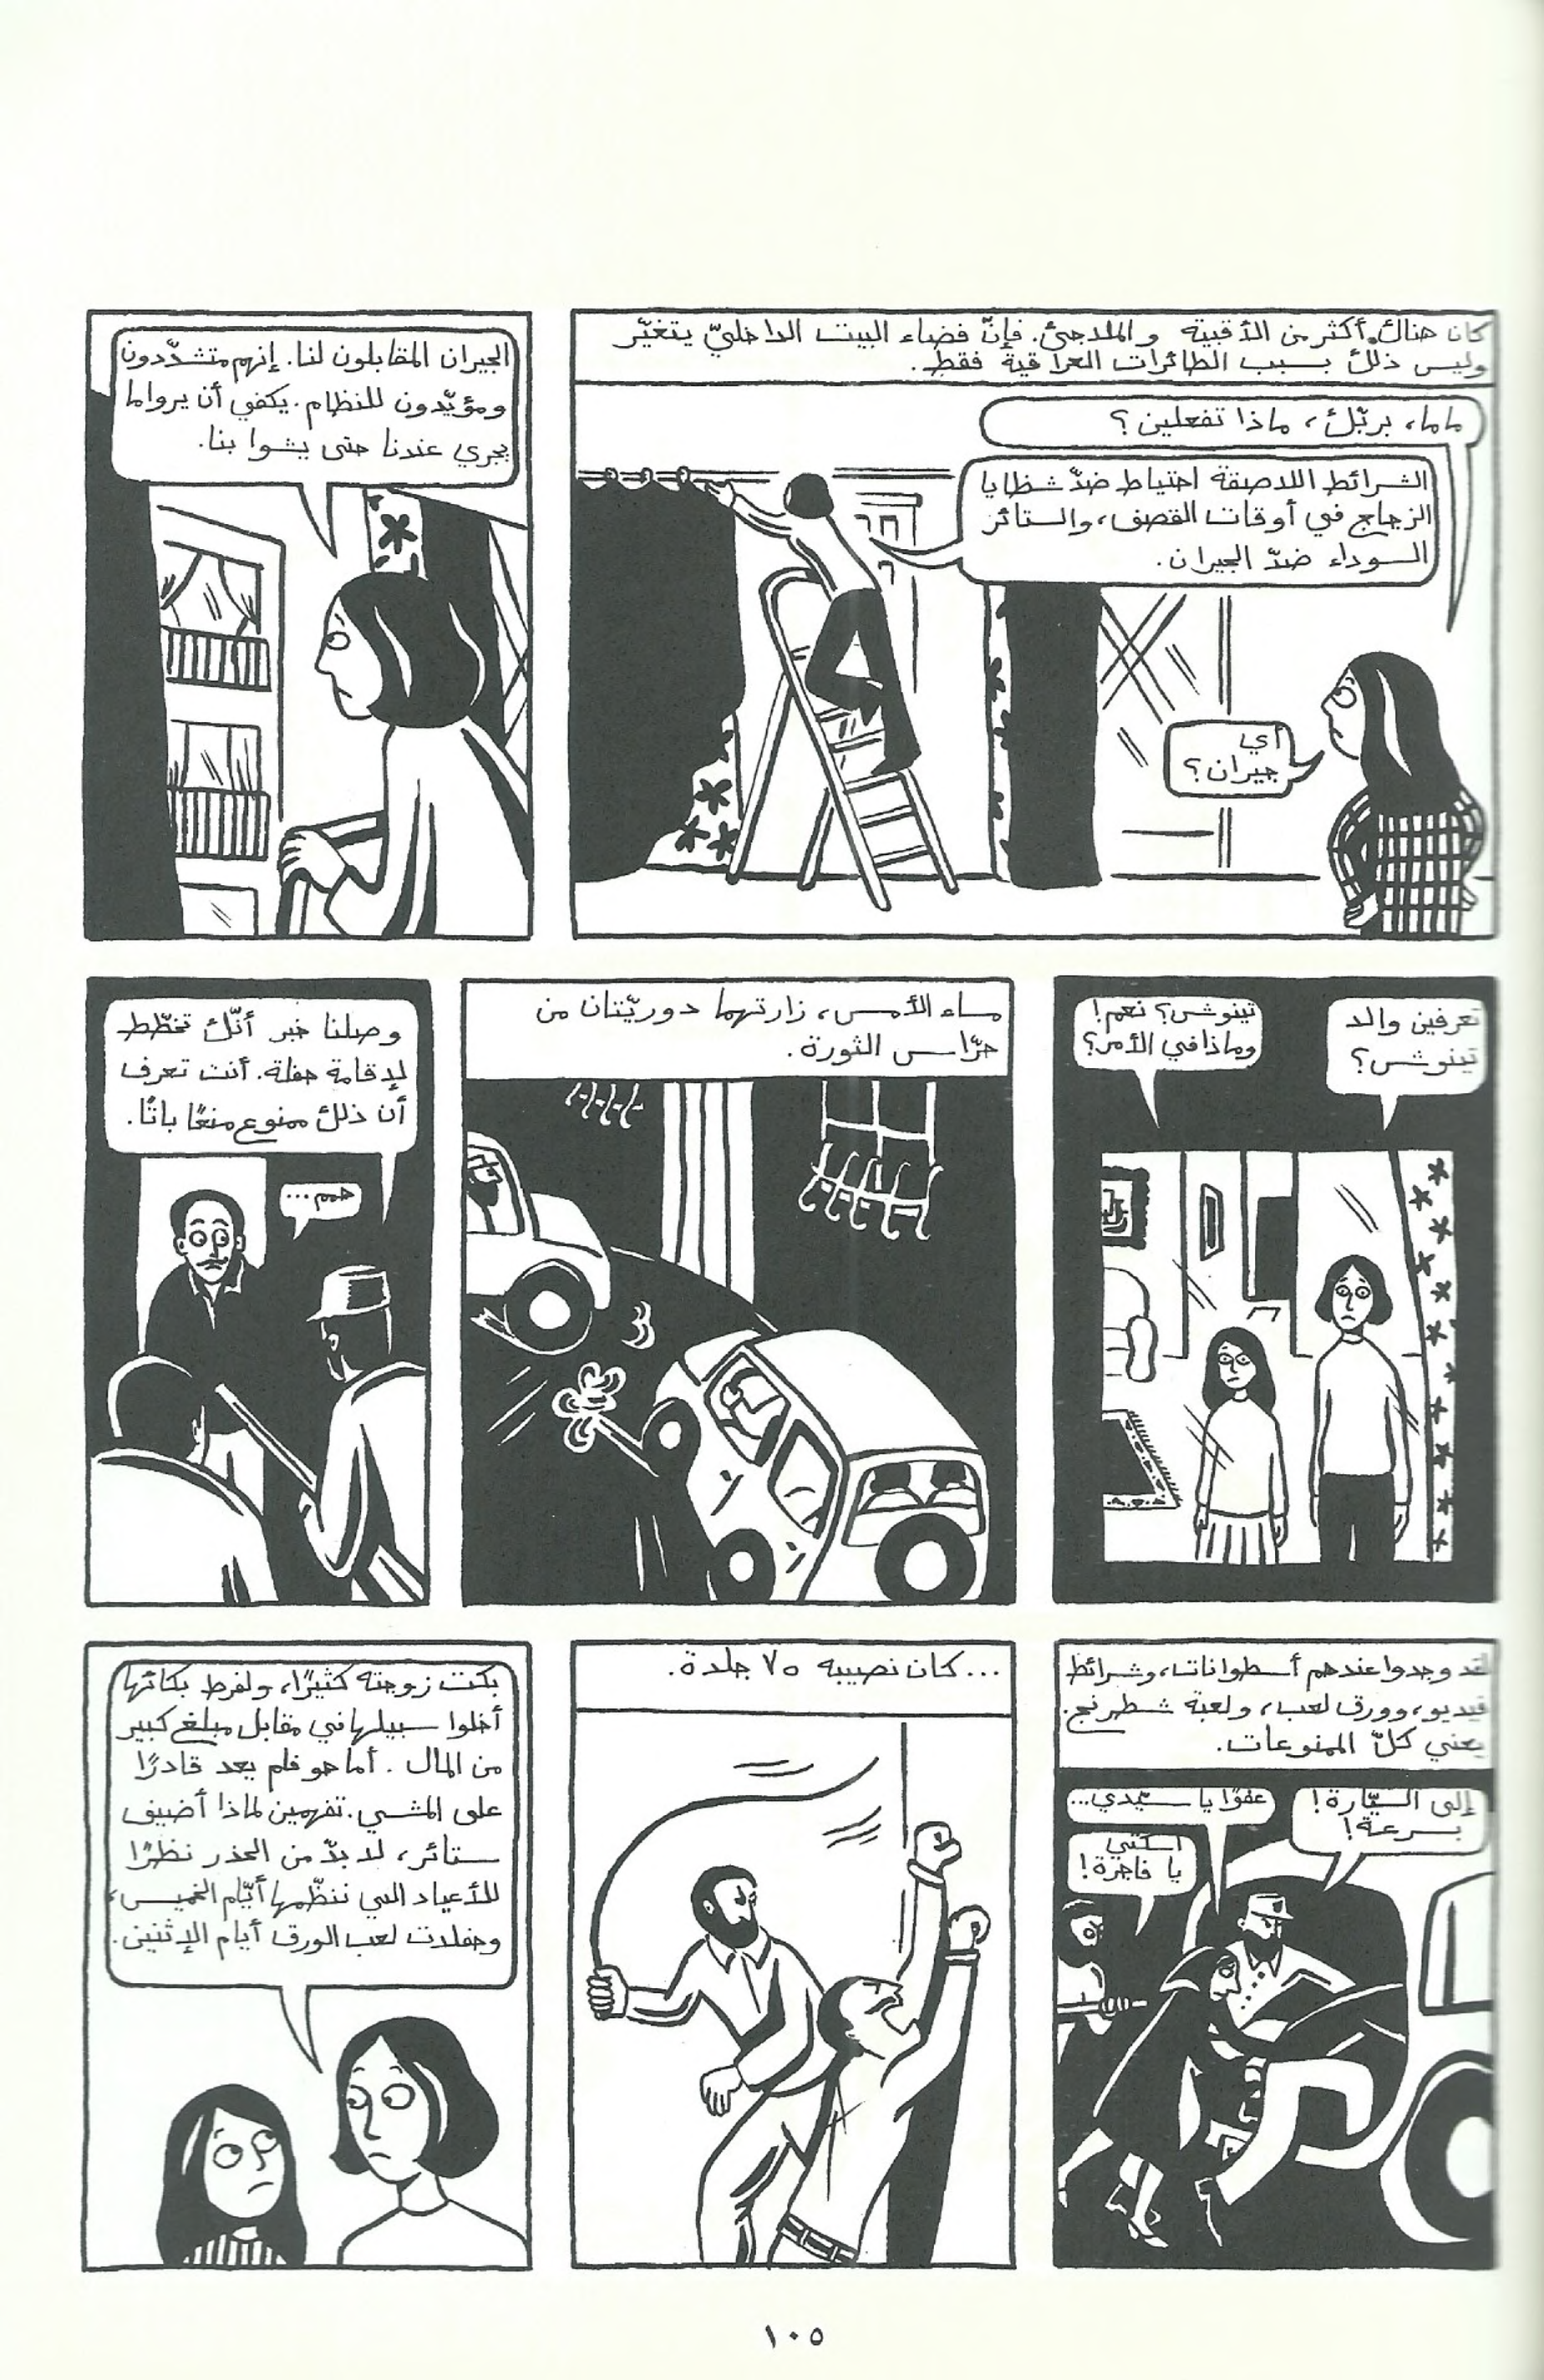 كان هناك أكثر من الأقبية والملاجئ. فإنّ فضاء البيت الداخليّ يتغيّر
وليس ذلك بسبب الطائرات العراقية فقط.
ماما، بربّك، ماذا تفعلين؟
الشرائط اللاصقة احتياط ضدّ شظايا
الزجاج في أوقات القصف، والستائر
السوداء ضدّ الجيران.
أي
جيران؟
الجيران المقابلون لنا. إنهم متشدّدون
ومؤيّدون للنظام. يكفي أن يروا ما
يجري عندنا حتى يشوا بنا.
تعرفين والد
تينوش؟
تينوش؟ نعم!
وماذا في الأمر؟
مساء الأمس، زارتهما دوريّتان من
حرّاس الثورة.
وصلنا خبر أنّك تخطّط
لإقامة حفلة. أنت تعرف
أن ذلك ممنوع منعًا باتًا.
همم...
لقد وجدوا عندهم أسطوانات، وشرائط
فيديو، وورق لعب، ولعبة شطرنج.
يعني كلّ الممنوعات.
إلى السيّارة!
بسرعة!
عفوًا يا سيّدي...
اسكتي
يا فاجرة!
...كان نصيبه ٧٥ جلدة.
بكت زوجته كثيرًا، ولفرط بكائها
أخلوا سبيلها في مقابل مبلغ كبير
من المال. أما هو فلم يعد قادرًا
على المشي. تفهمين لماذا أضيف
ستائر، لا بدّ من الحذر نظرًا
للأعياد التي ننظّمها أيّام الخميس،
وحفلات لعب الورق أيام الإثنين.
١٠٥